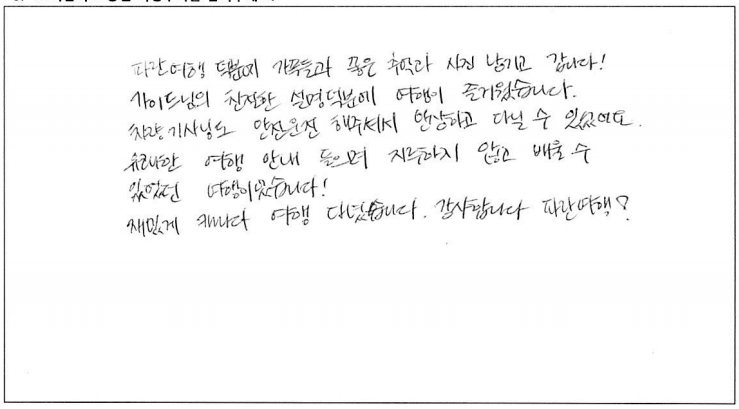 파란여행 덕분에 가족들과 좋은 추억과 사진 남기고 갑니다!
가이드님의 친절한 설명덕분에 여행이 즐거웠습니다.
차량기사님도 안전운전 해주셔서 안심하고 다닐 수 있었어요.
유쾌한 여행 안내 들으며 지루하지 않고 배울 수
있었던 여행이었습니다!
재밌게 캐나다 여행 다녔습니다. 감사합니다 파란여행?